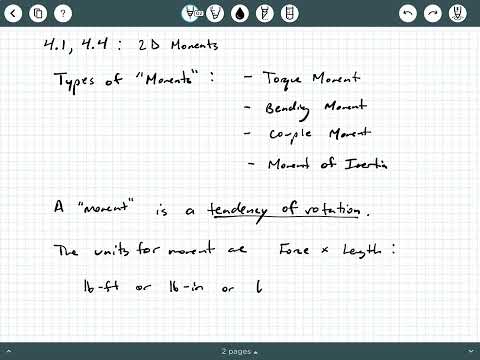 4.1, 4.4 : 2D Moments
Types of "Moments" : - Torque Moment
- Bending Moment
- Couple Moment
- Moment of Inertia
A "moment" is a tendency of rotation.
The units for moment are Force × Length :
lb-ft or lb-in or (
2 pages